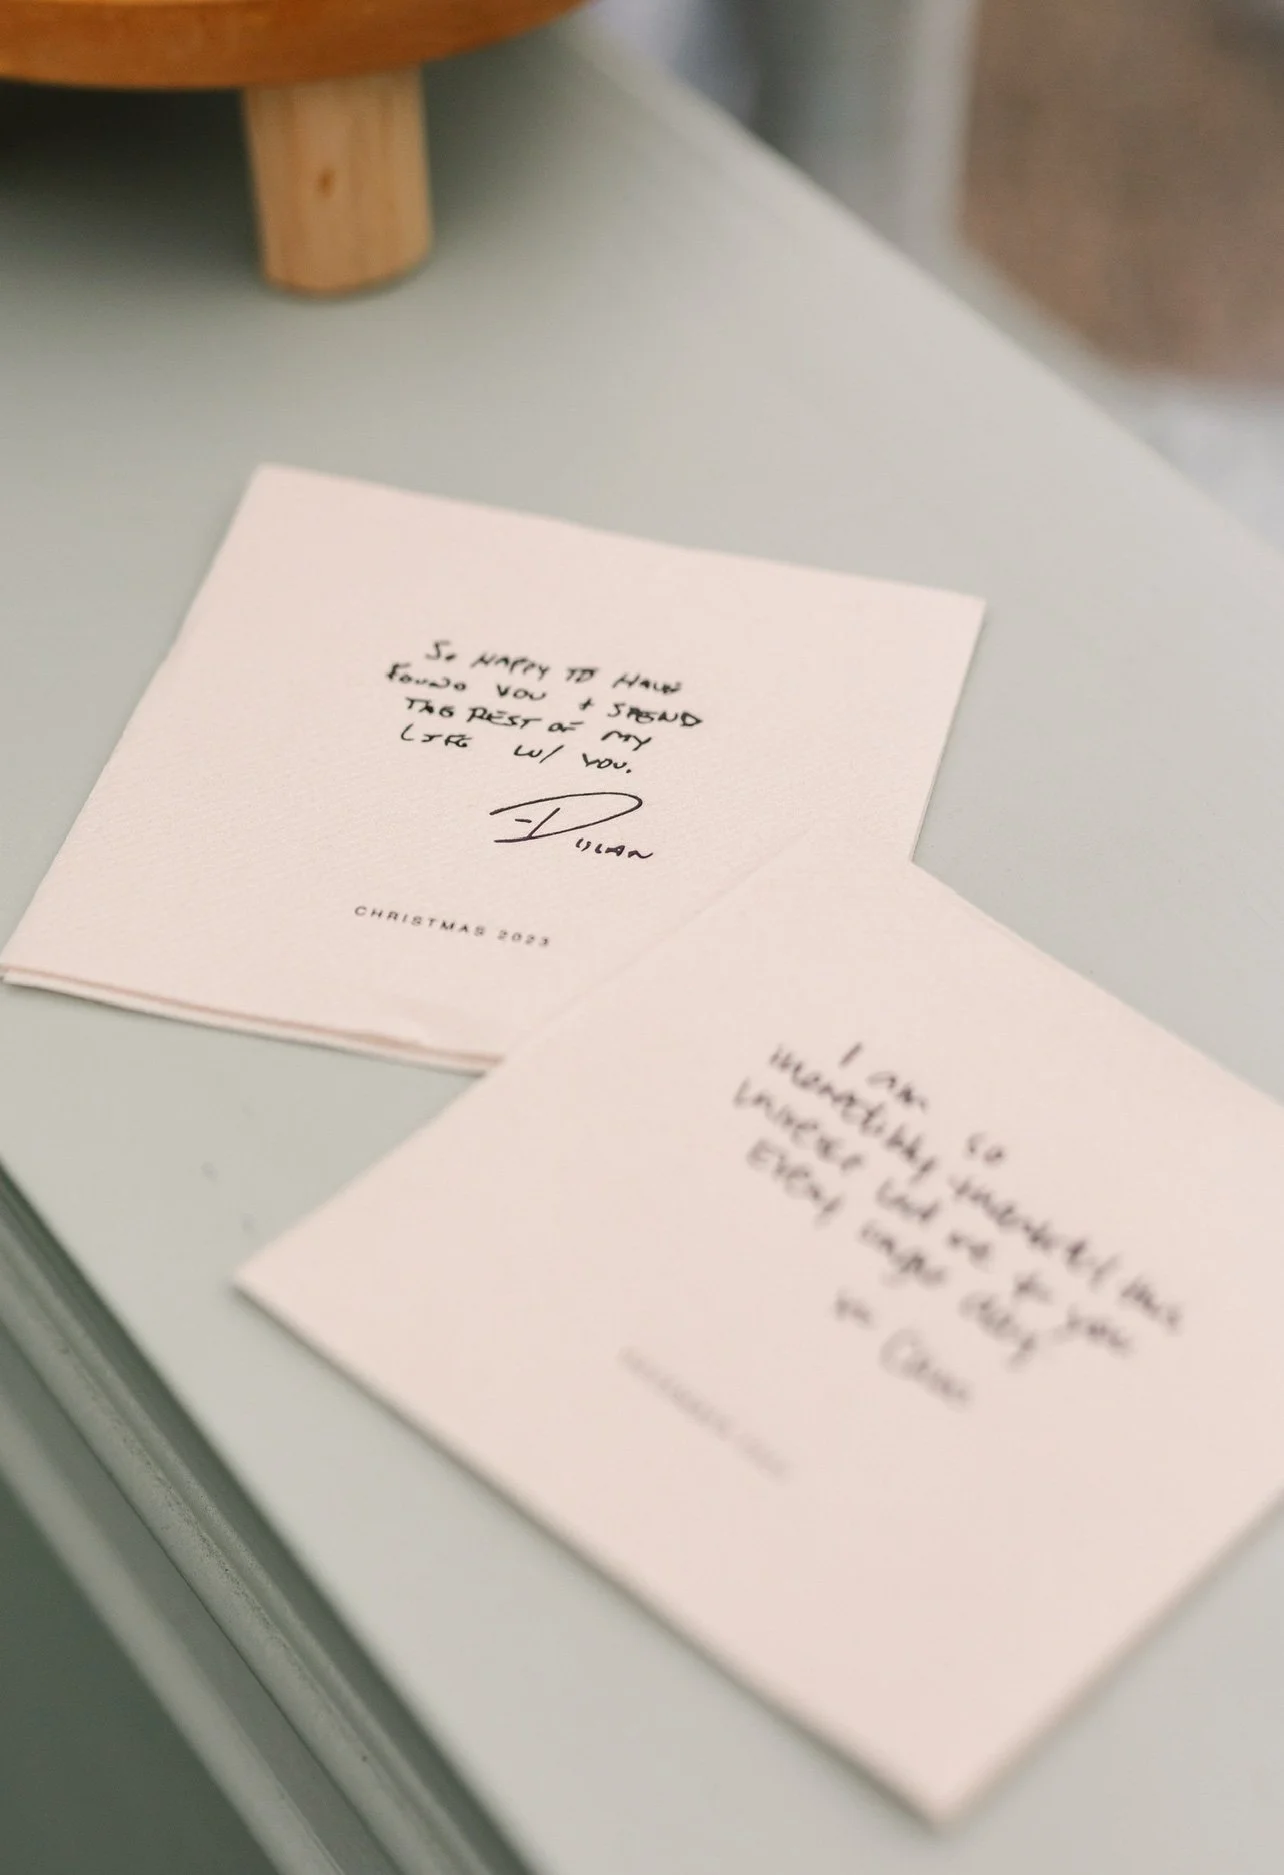 So HAPPY TO HAVE
FOUND YOU + SPEND
THE REST OF MY
LIFE W/ YOU.
-DYLAN
CHRISTMAS 2023
I am so
incredibly the
universe led me to you
Every single day